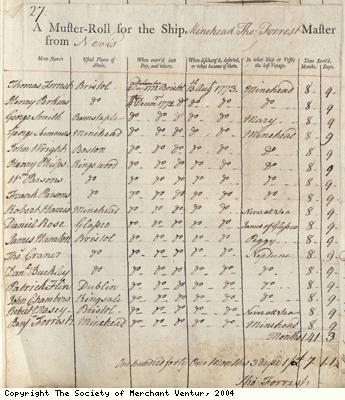 27
A Muster-Roll for the Ship Minehead Tho: Forrest Master
from Nevis
Mens Names Usual Place of Abode. When enter'd into Pay, and where. When discharg'd, deserted, or what become of them. In what Ship or Vessel the last Voyage. Time Serv'd. Months. Days.
Thomas Forrest Bristol 1772 Bristol 13 Augt 1773 Minehead 8 9
Henry Perkins do 1772 do do do do 8 9
George Smith Barnstaple do do do do Mary 8 9
George Simmons Minehead do do do do Minehead 8 9
John Wright Boston do do do do do 8 9
Henry Phelps Kingswood do do do do do 8 9
Wm Parsons do do do do do do 8 9
Frank Parsons do do do do do do 8 9
Robert Minehead do do do do Never at Sea 8 9
Daniel Rose Glasco do do do do James of Glasco 8 9
James Hamton Bristol do do do do Peggy 8 9
Tho: Craner do do do do do Neptune 8 9
Dan Buckley do do do do do do 8 9
Patrick Flin Dublin do do do do do 8 9
John Chambers Kingsale do do do do do 8 9
Robert Masey Bristol do do do do Never at Sea 8 9
Benj Forrest Minehead do do do do Minehead 8 9
Months 141 3
One hundred forty One Months 3 Days 7 1 1
Tho Forrest
Copyright The Society of Merchant Ventur, 2004